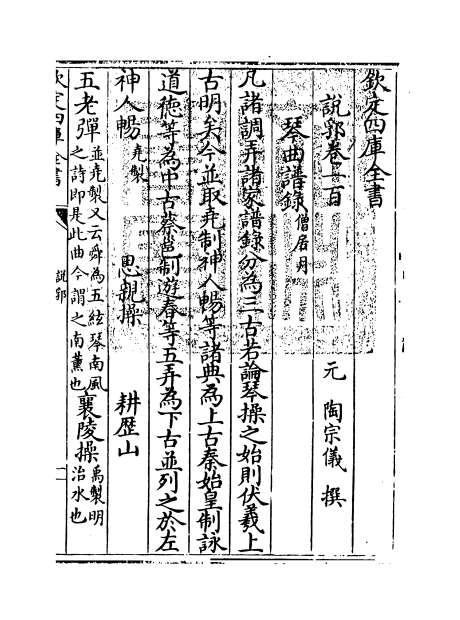 欽定四庫全書
說郛卷一百
元 陶宗儀 撰
琴曲譜錄 僧居月
凡諸調弄諸家譜錄分為三古若論琴操之始則伏羲上
古明矣今並取堯制神人暢等諸典為上古秦始皇制詠
道德等為中古蔡邕制遊春等五弄為下古並列之於左
神人暢 堯製 思親操 耕歷山
五老彈 並堯製又云舜為五絃琴南風之詩即是此曲今謂之南薰也 襄陵操 禹製明治水也
欽定四庫全書
說郛